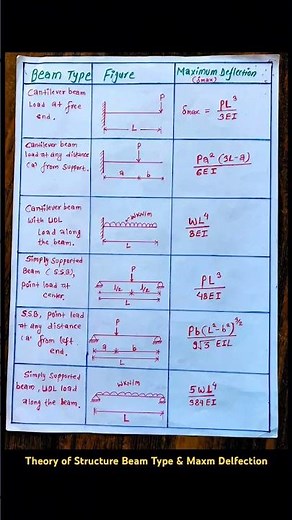 Beam Type Figure Maximum Deflection
(δmax)
Cantilever beam
Load at free
end.
P
L
δmax = PL³/3EI
Cantilever beam
load at any distance
(a' from support.
P
a b
Pa² (3L-a)/6EI
Cantilever beam
with UDL
load along
the beam.
WKN/m
L
WL⁴/8EI
Simply Supported
Beam (SSB),
point load at
center.
P
L/2 L/2
L
PL³/48EI
S.S.B, point load
at any distance
(a' from left
end.
P
a b
L
Pb(L²-b²)^3/2/9√3 EIL
Simply supported
beam, UDL load
along the beam.
WKN/m
L
5WL⁴/384EI
Theory of Structure Beam Type & Maxm Delfection